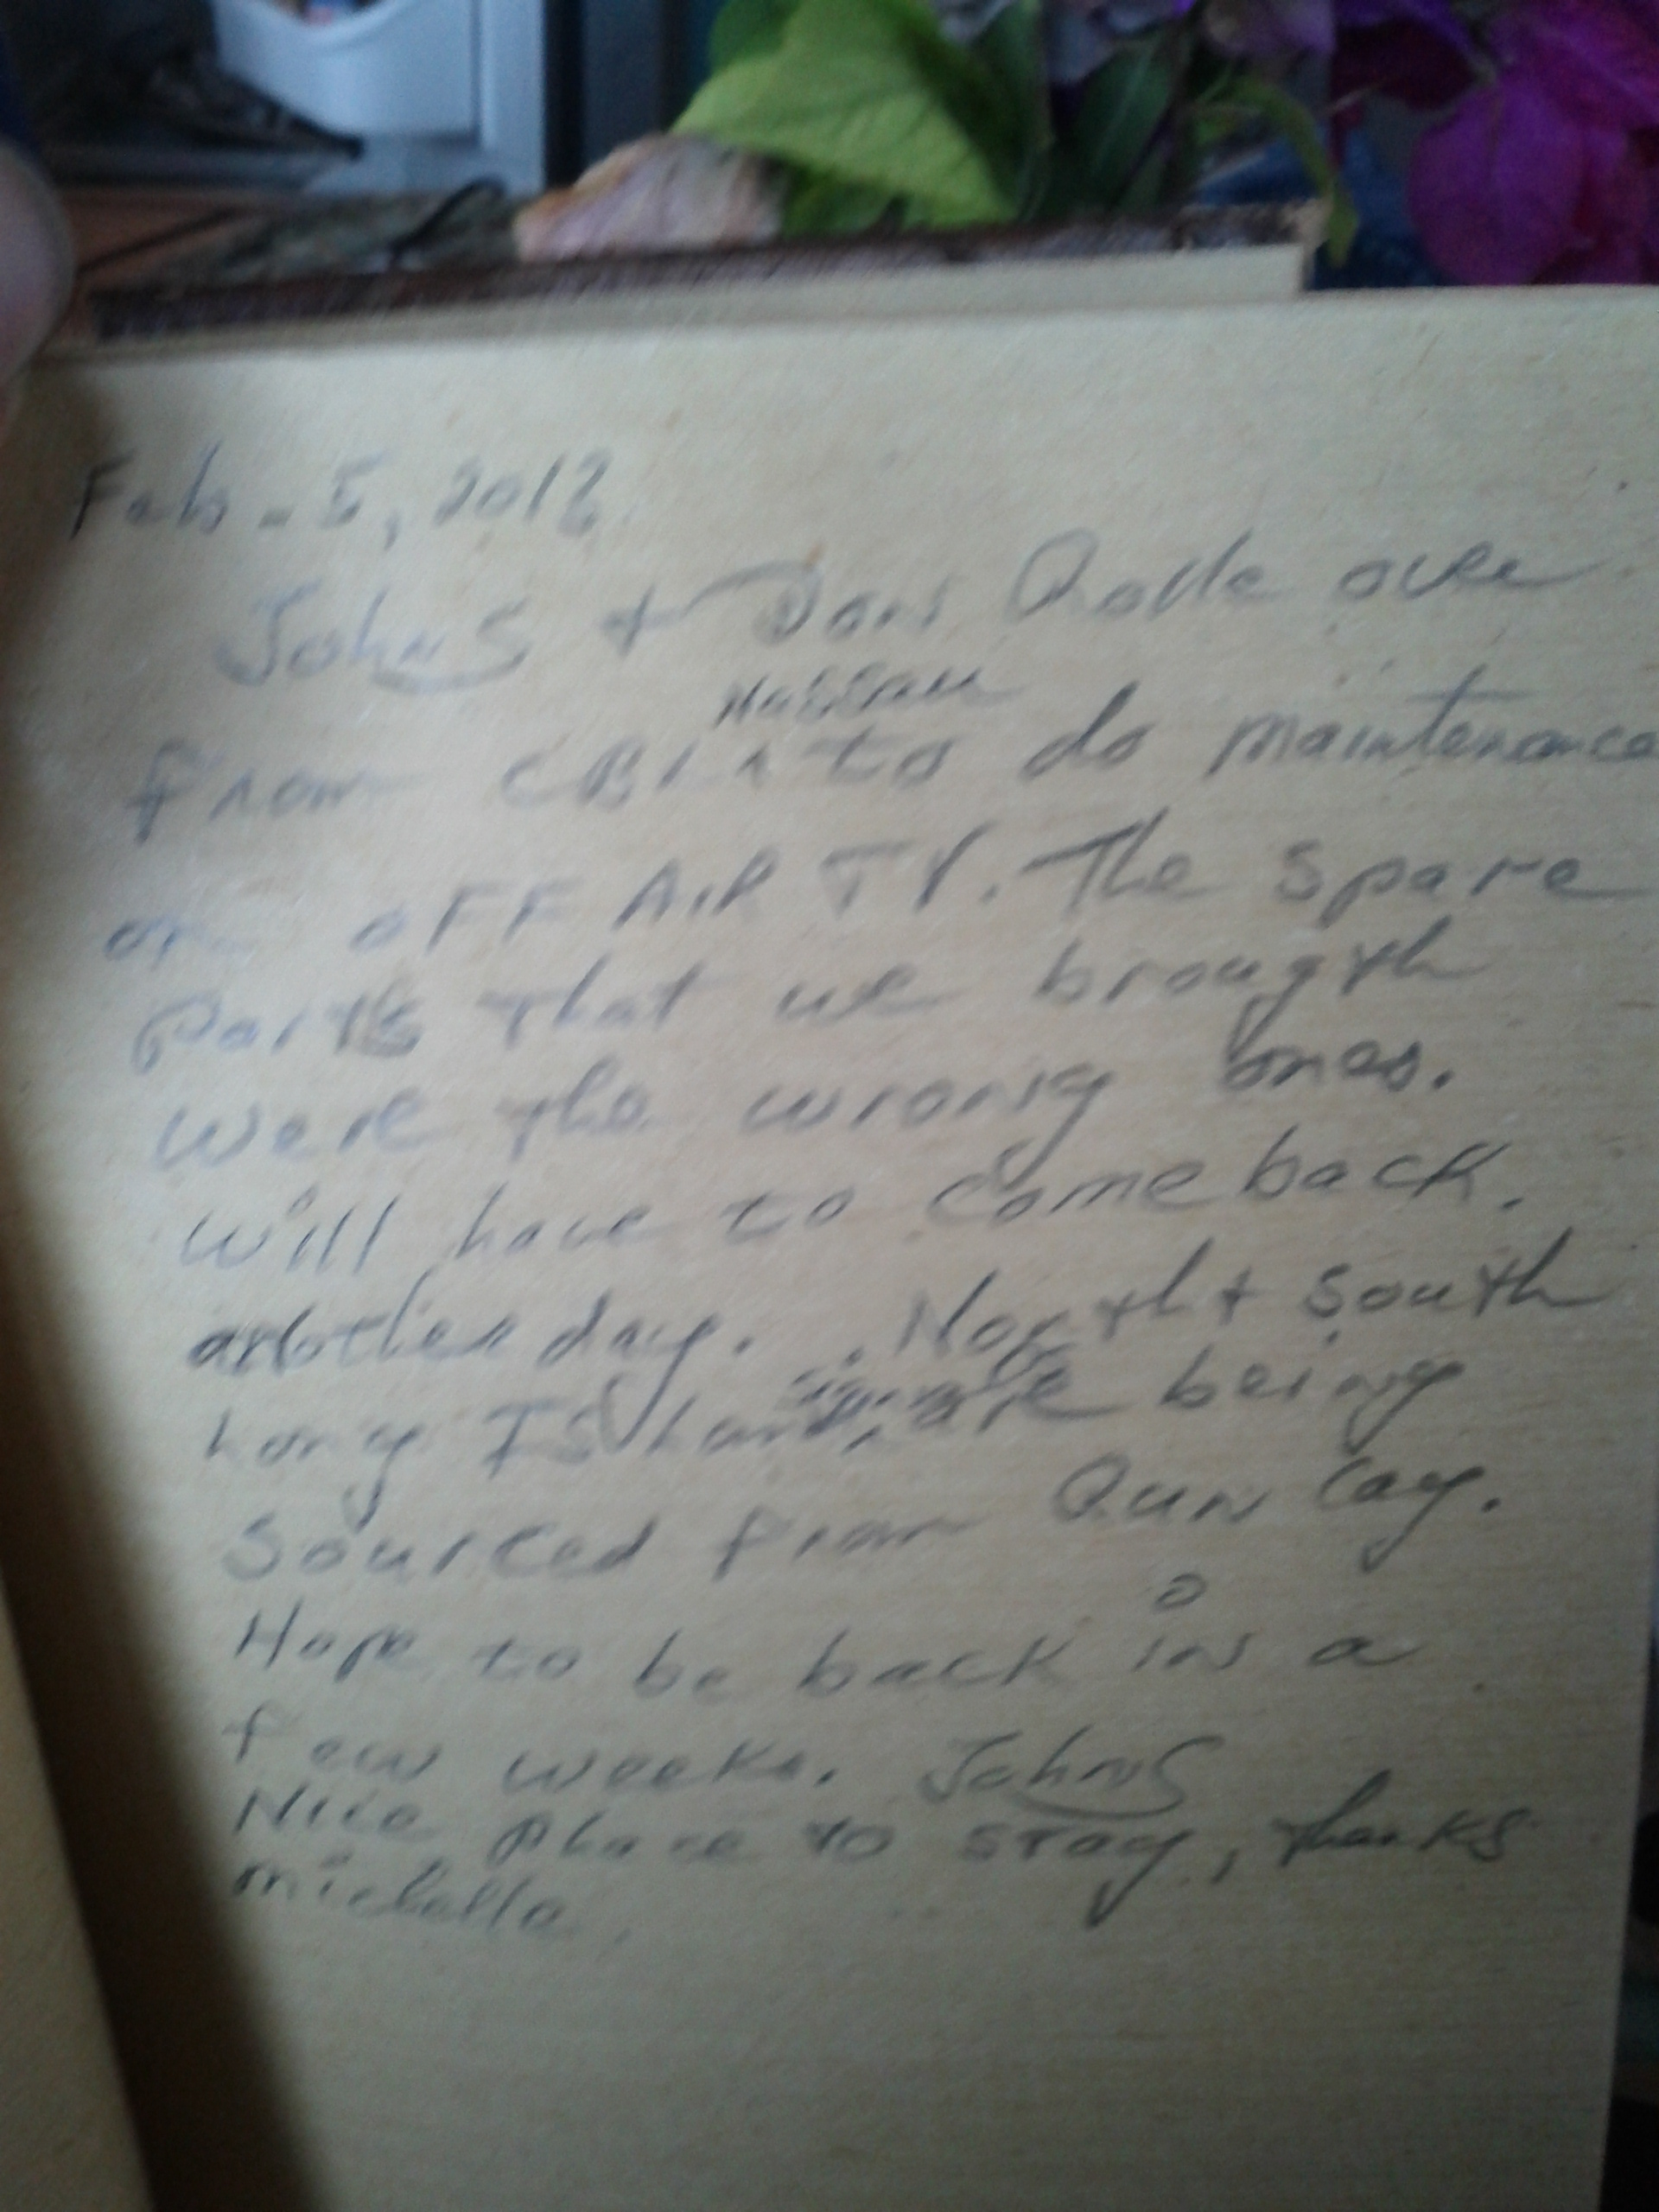 Feb - 5, 2018
JohnS + Don Rolle over
Nassau
from CBL ^ to do maintenance
on OFF AIR TV. The spare
parts that we brougth
were the wrong ones.
Will have to come back.
another day. North + South
Long Island, are being
Sourced from Rum Cay.
Hope to be back in a
few weeks. JohnS
Nice place to stay, thanks
michelle.